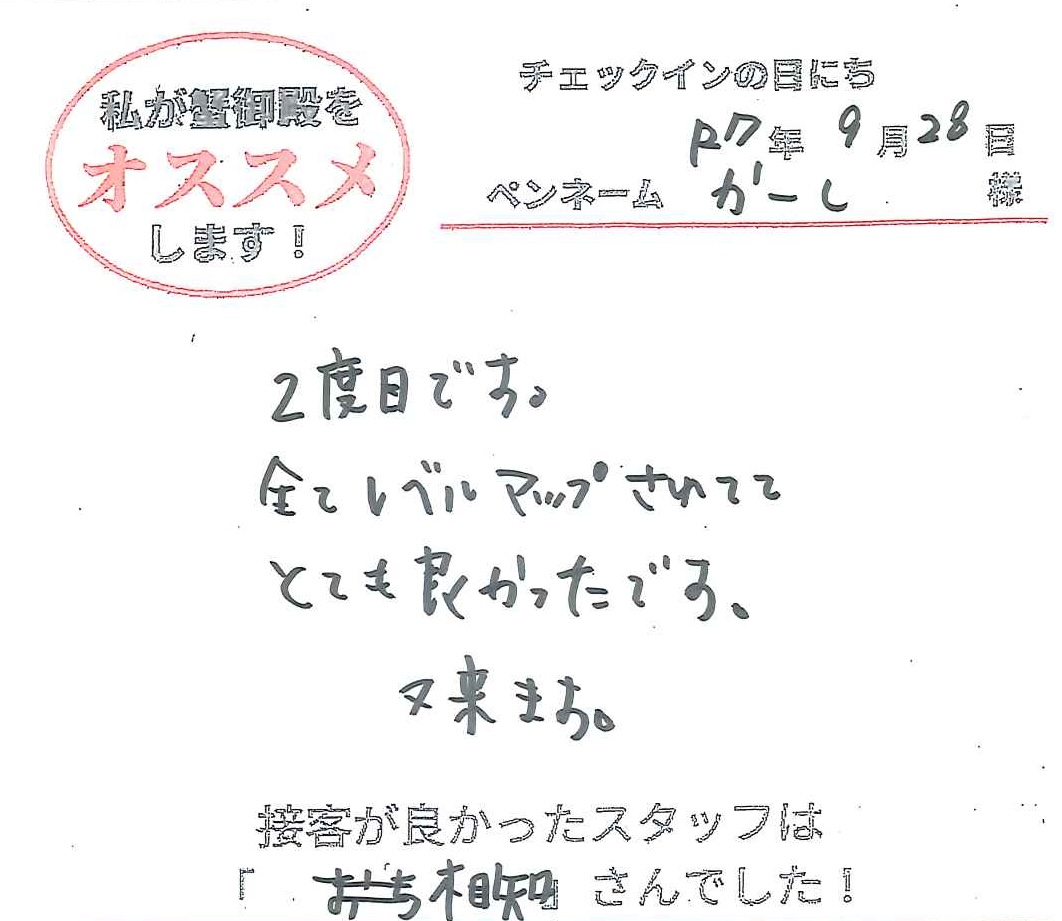 私が蟹御殿を
オススメ
します！
チェックインの日にち
R7年 9月28日
ペンネーム かーし 様
2度目です。
全てレベルアップされてて
とても良かったです。
又来ます。
接客が良かったスタッフは
「 相知」さんでした！